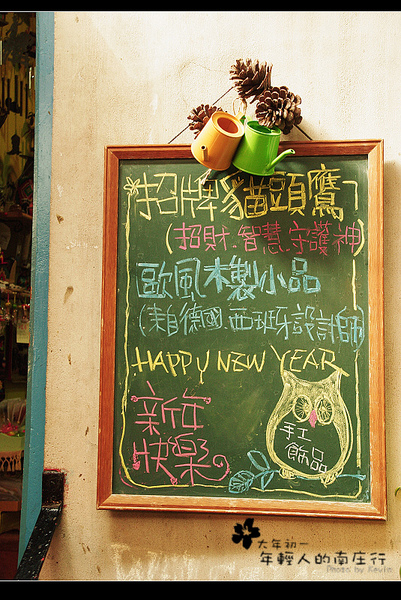 招牌貓頭鷹
(招財.智慧.守護神)
歐風木製小品
(來自德國.西班牙設計師)
HAPPY NEW YEAR
新年
快樂
手工
飾品
大年初一
年輕人的南庄行
Photo by Kevin